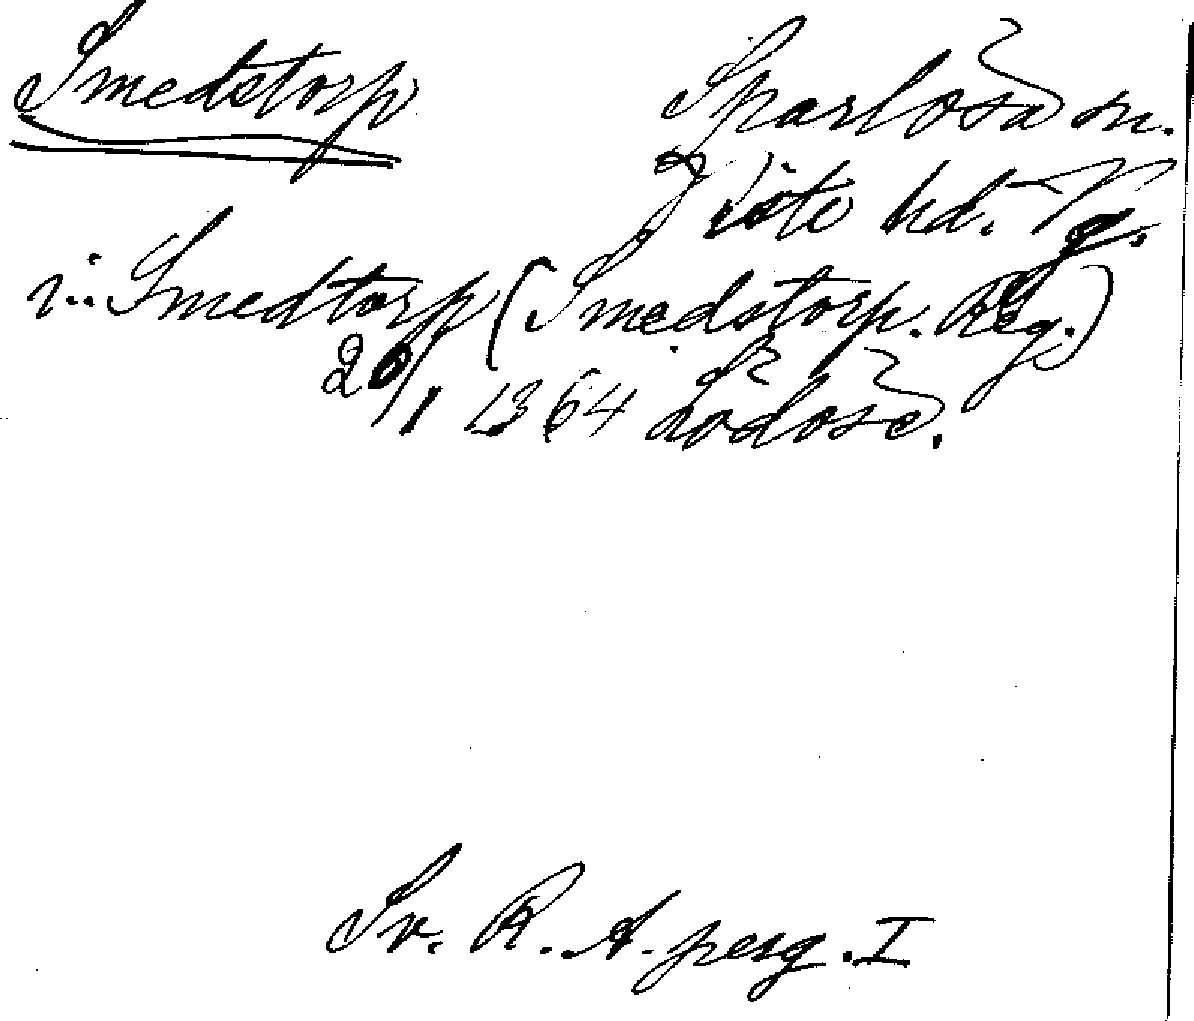 Smedstorp Sparlösa sn.
Viste hd. Vg.
i: Smedtorp (Smedstorp. Reg.)
20/1 1364 Lödöse.
Sv. R. A. perg. I